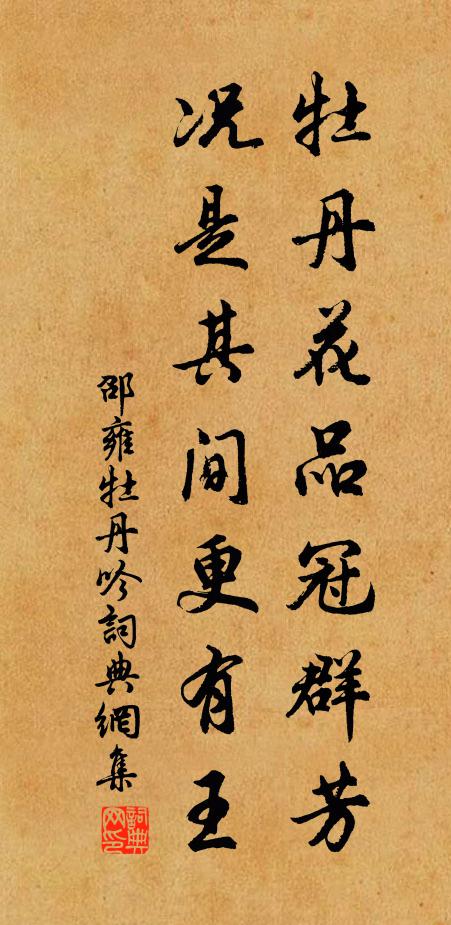 牡丹花品冠群芳
况是其间更有王
邵雍牡丹吟詞典網集
詞典網印